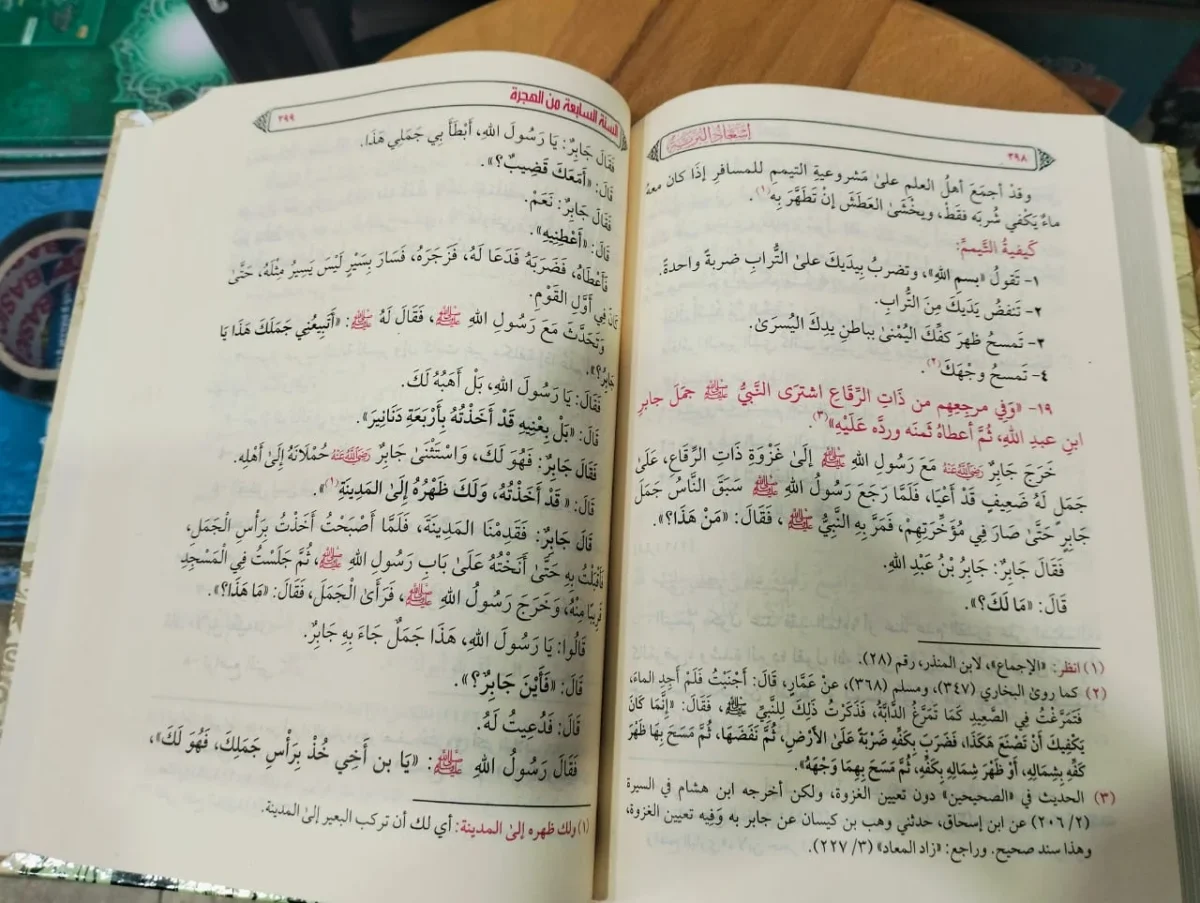 ٣٩٨
وقدْ أجمَعَ أهلُ العلمِ علىٰ مَشروعيةِ التيممِ للمسافرِ إذَا كان معهُ
ماءٌ يَكْفي شُربَه فقَطْ، ويخْشَىٰ العَطَشَ إنْ تَطَهَّرَ بِهِ(١).
كَيفيةُ التَّيممِّ:
١- تَقولُ «بسمِ اللهِ»، وتضربُ بيدَيكَ علىٰ التُّرابِ ضربةً واحدةً.
٢- تَنفضُ يَدَيكَ مِنَ التُّرابِ.
٣- تَمسحُ ظهرَ كفِّكَ اليُمْنىٰ بباطنِ يدِكَ اليُسرَىٰ.
٤- تَمسحُ وجْهَكَ(٢).
١٩- «وَفِي مرجِعِهم من ذَاتِ الرِّقَاع اشترَى النَّبيُّ ﷺ جمَلَ جابرِ
ابنِ عبدِ اللهِ، ثُمَّ أعطاهُ ثَمنَه وردَّه عَلَيْهِ»(٣).
خَرَجَ جَابِرٌ رَضِيَ اللَّهُ عَنْهُ مَعَ رَسُولِ اللهِ ﷺ إِلَىٰ غَزْوَةِ ذَاتِ الرِّقَاعِ، عَلَىٰ
جَمَلٍ لَهُ ضَعِيفٍ قَدْ أَعْيَا، فَلَمَّا رَجَعَ رَسُولُ اللهِ ﷺ سَبَقَ النَّاسُ جَمَلَ
جَابِرٍ حَتَّىٰ صَارَ فِي مُؤَخَّرَتِهِمْ، فَمَرَّ بِهِ النَّبِيُّ ﷺ، فَقَالَ: «مَنْ هَذَا؟».
فَقَالَ جَابِرٌ: جَابِرُ بْنُ عَبْدِ اللهِ.
قَالَ: «مَا لَكَ؟».
(١) انظر: «الإجماع»، لابن المنذر، رقم (٢٨).
(٢) كما روىٰ البخاري (٣٤٧)، ومسلم (٣٦٨)، عنْ عمَّارٍ، قَالَ: أَجْنَبْتُ فَلَمْ أَجِدِ الماءَ،
فَتَمَرَّغْتُ فِي الصَّعِيدِ كَمَا تَمَرَّغُ الدَّابَّةُ، فَذَكَرْتُ ذَلِكَ لِلنَّبِيِّ ﷺ، فَقَالَ: «إِنَّمَا كَانَ
يَكْفِيكَ أَنْ تَصْنَعَ هَكَذَا، فَضَرَبَ بِكَفِّهِ ضَرْبَةً عَلَىٰ الأَرْضِ، ثُمَّ نَفَضَهَا، ثُمَّ مَسَحَ بِهَا ظَهْرَ
كَفِّهِ بِشِمَالِهِ، أَوْ ظَهْرَ شِمَالِهِ بِكَفِّهِ، ثُمَّ مَسَحَ بِهِمَا وَجْهَهُ».
(٣) الحديث في «الصحيحين» دون تعيين الغزوة، ولكن أخرجه ابن هشام في السيرة
(٢/ ٢٠٦) عن ابن إسحاق، حدثني وهب بن كيسان عن جابر به وَفِيه تعيين الغزوة،
وهذا سند صحيح. وراجع: «زاد المعاد» (٣/ ٢٢٧).
السنة السابعة من الهجرة
٣٩٩
فَقَالَ جَابِرٌ: يَا رَسُولَ اللهِ، أَبْطَأَ بِي جَمَلِي هَذَا.
قَالَ: «أَمَعَكَ قَضِيبٌ؟».
فَقَالَ جَابِرٌ: نَعَمْ.
قَالَ: «أَعْطِنِيهِ».
فَأَعْطَاهُ، فَضَرَبَهُ فَدَعَا لَهُ، فَزَجَرَهُ، فَسَارَ بِسَيْرٍ لَيْسَ يَسِيرُ مِثْلَهُ، حَتَّىٰ
كَانَ فِي أَوَّلِ القَوْمِ.
وَتَحَدَّثَ مَعَ رَسُولِ اللهِ ﷺ، فَقَالَ لَهُ ﷺ: «أَتَبِيعُنِي جَمَلَكَ هَذَا يَا
جَابِرُ؟».
فَقَالَ: يَا رَسُولَ اللهِ، بَلْ أَهَبُهُ لَكَ.
قَالَ: «بَلْ بِعْنِيهِ قَدْ أَخَذْتُهُ بِأَرْبَعَةِ دَنَانِيرَ».
فَقَالَ جَابِرٌ: فَهُوَ لَكَ، وَاسْتَثْنَىٰ جَابِرٌ رَضِيَ اللَّهُ عَنْهُ حُمْلَانَهُ إِلَىٰ أَهْلِهِ.
قَالَ: « قَدْ أَخَذْتُهُ، وَلَكَ ظَهْرُهُ إِلَىٰ المَدِينَةِ(١)».
قَالَ جَابِرٌ: فَقَدِمْنَا المَدِينَةَ، فَلَمَّا أَصْبَحْتُ أَخَذْتُ بِرَأْسِ الْجَمَلِ،
فَأَقْبَلْتُ بِهِ حَتَّىٰ أَنَخْتُهُ عَلَىٰ بَابِ رَسُولِ اللهِ ﷺ، ثُمَّ جَلَسْتُ فِي الْمَسْجِدِ
قَرِيبًا مِنْهُ، وَخَرَجَ رَسُولُ اللهِ ﷺ، فَرَأَىٰ الْجَمَلَ، فَقَالَ: «مَا هَذَا؟».
قَالُوا: يَا رَسُولَ اللهِ، هَذَا جَمَلٌ جَاءَ بِهِ جَابِرٌ.
قَالَ: «فَأَيْنَ جَابِرٌ؟».
قَالَ: فَدُعِيتُ لَهُ.
فَقَالَ رَسُولُ اللهِ ﷺ: «يَا بن أَخِي خُذْ بِرَأْسِ جَمَلِكَ، فَهُوَ لَكَ»،
(١) ولك ظهره إلىٰ المدينة: أي لك أن تركب البعير إلىٰ المدينة.